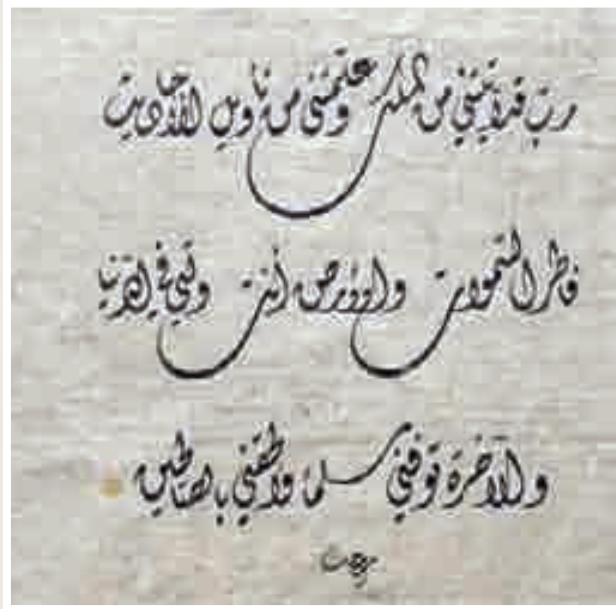 رب قد آتيتني من الملك وعلمتني من تأويل الأحاديث
فاطر السموات والأرض أنت وليي في الدنيا
والآخرة توفني مسلما وألحقني بالصالحين